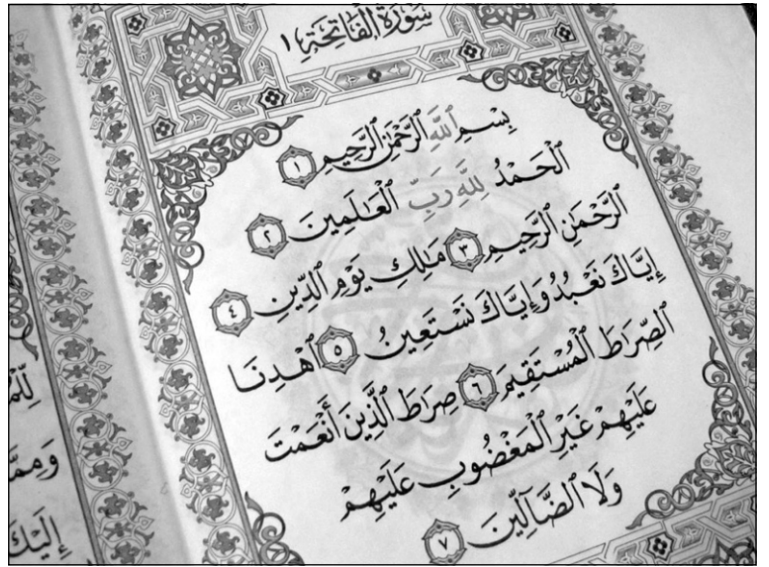 سُورَةُ الْفَاتِحَةِ ١
بِسْمِ اللَّهِ الرَّحْمَٰنِ الرَّحِيمِ ١
الْحَمْدُ لِلَّهِ رَبِّ الْعَالَمِينَ ٢
الرَّحْمَٰنِ الرَّحِيمِ ٣ مَالِكِ يَوْمِ الدِّينِ ٤
إِيَّاكَ نَعْبُدُ وَإِيَّاكَ نَسْتَعِينُ ٥ اهْدِنَا
الصِّرَاطَ الْمُسْتَقِيمَ ٦ صِرَاطَ الَّذِينَ أَنْعَمْتَ
عَلَيْهِمْ غَيْرِ الْمَغْضُوبِ عَلَيْهِمْ
وَلَا الضَّالِّينَ ٧
إِلَيْكَ